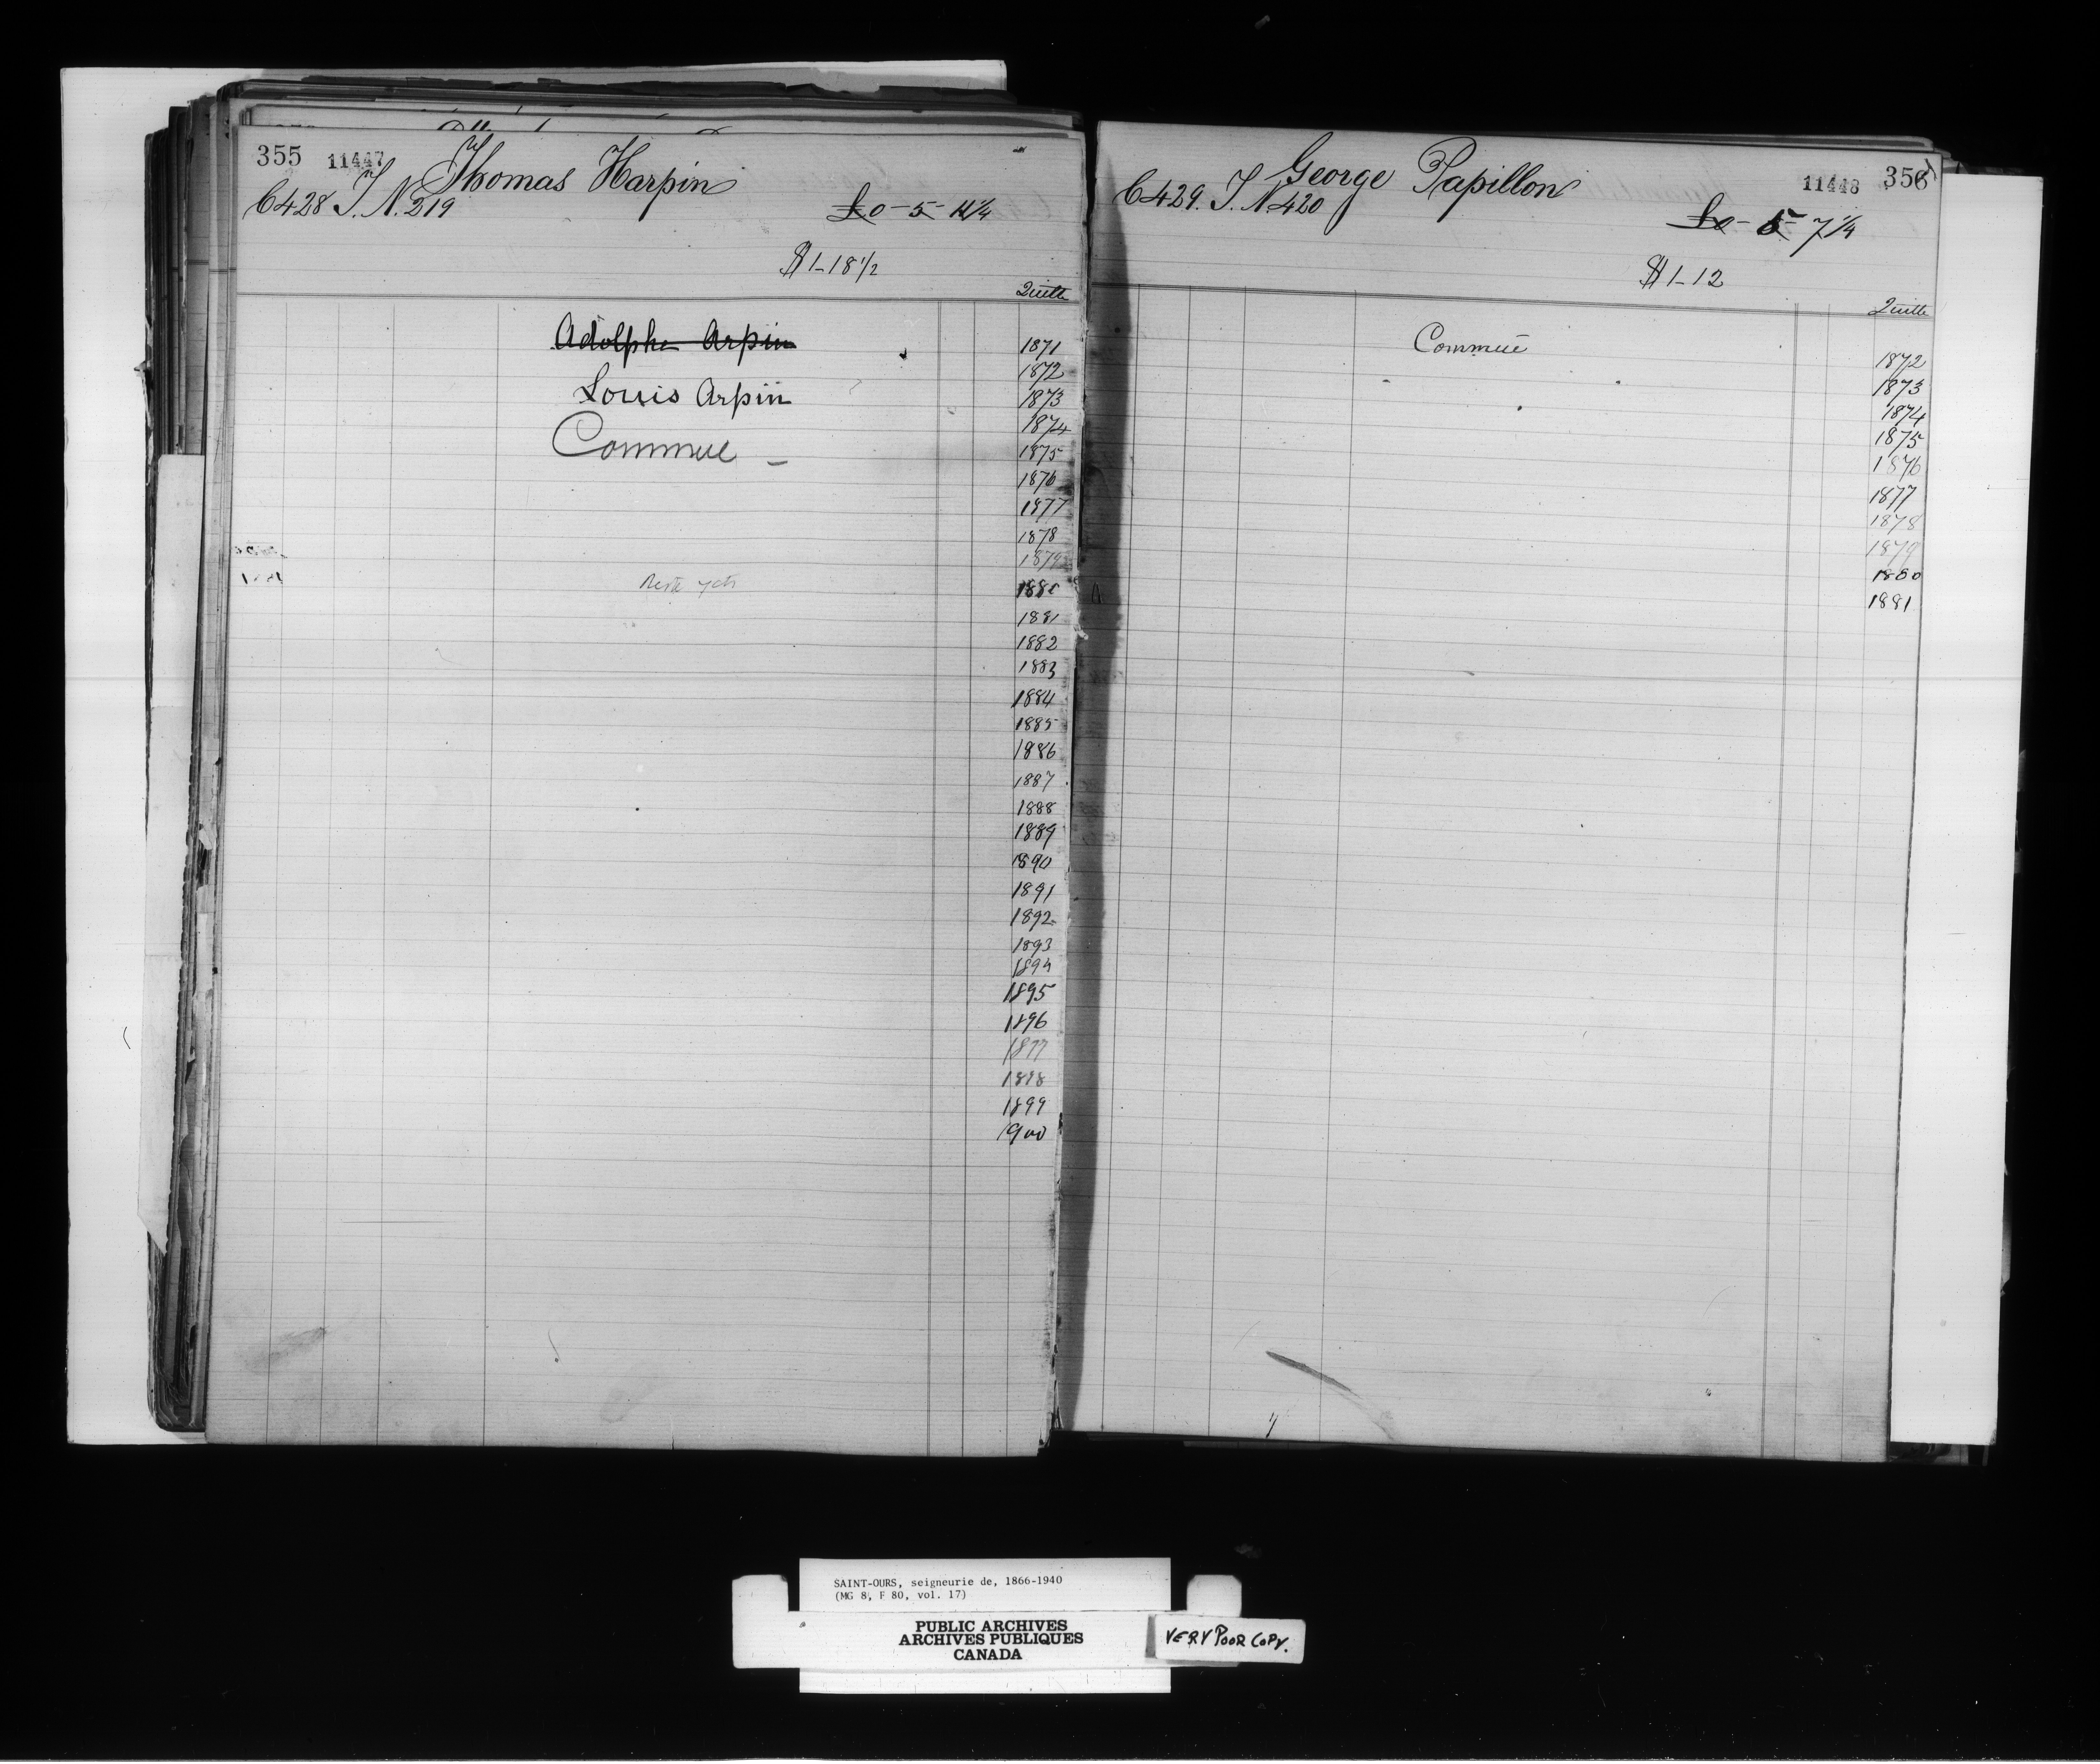 355 11447 Thomas Harpin
C428 T. N. 219
£0-5-11 1/4
$1-18 1/2
Quitte
Adolphe Arpin
Louis Arpin
Commué
1871
1872
1873
1874
1875
1876
1877
1878
1879
1880
1881
1882
1883
1884
1885
1886
1887
1888
1889
1890
1891
1892
1893
1894
1895
1896
1897
1898
1899
1900
George Papillon 11448 356
C429. T. N. 420
£0-5-7 1/4
$1-12
Quitte
Commué
1872
1873
1874
1875
1876
1877
1878
1879
1880
1881
SAINT-OURS, seigneurie de, 1866-1940
(MG 8, F 80, vol. 17)
PUBLIC ARCHIVES
ARCHIVES PUBLIQUES
CANADA
VERY POOR COPY.